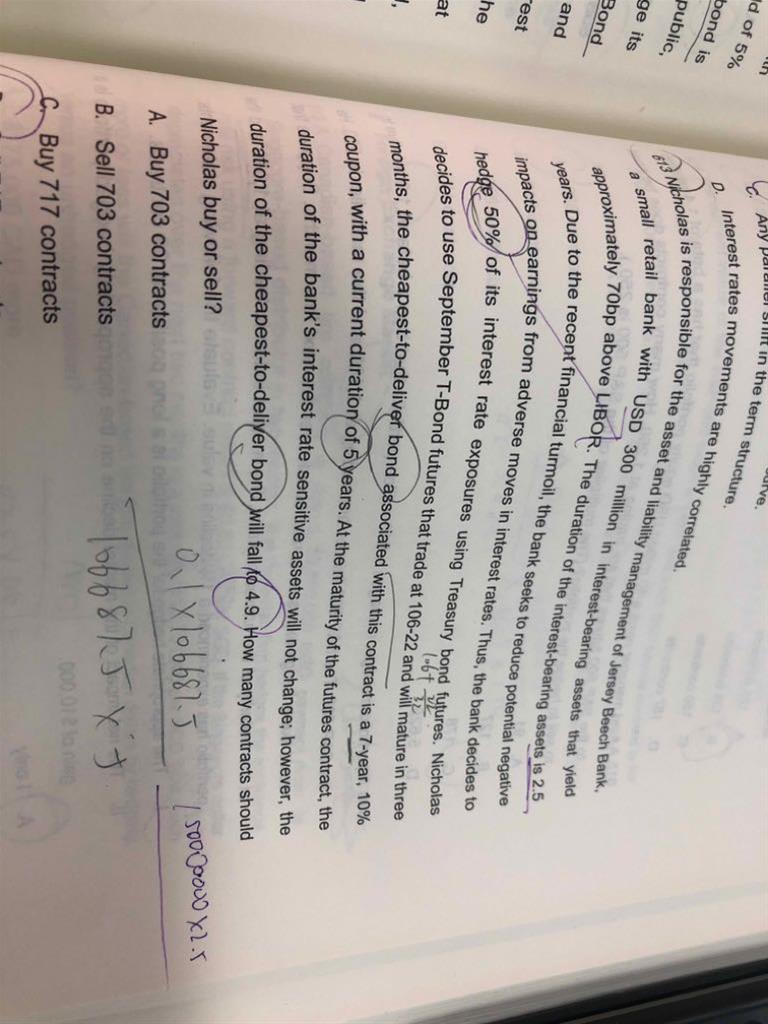 ld of 5%
bond is
public,
ge its
Bond
and
est
he
at
C. Any parallel shift in the term structure.
D. Interest rates movements are highly correlated.
613 Nicholas is responsible for the asset and liability management of Jersey Beech Bank,
a small retail bank with USD 300 million in interest-bearing assets that yield
approximately 70bp above LIBOR. The duration of the interest-bearing assets is 2.5
years. Due to the recent financial turmoil, the bank seeks to reduce potential negative
impacts on earnings from adverse moves in interest rates. Thus, the bank decides to
hedge 50% of its interest rate exposures using Treasury bond futures. Nicholas
decides to use September T-Bond futures that trade at 106-22 and will mature in three
months, the cheapest-to-deliver bond associated with this contract is a 7-year, 10%
coupon, with a current duration of 5 years. At the maturity of the futures contract, the
duration of the bank's interest rate sensitive assets will not change; however, the
duration of the cheapest-to-deliver bond will fall to 4.9. How many contracts should
Nicholas buy or sell?
150000000×2.5
0.1×106687.5
A. Buy 703 contracts
106687.5×5
B. Sell 703 contracts
C. Buy 717 contracts